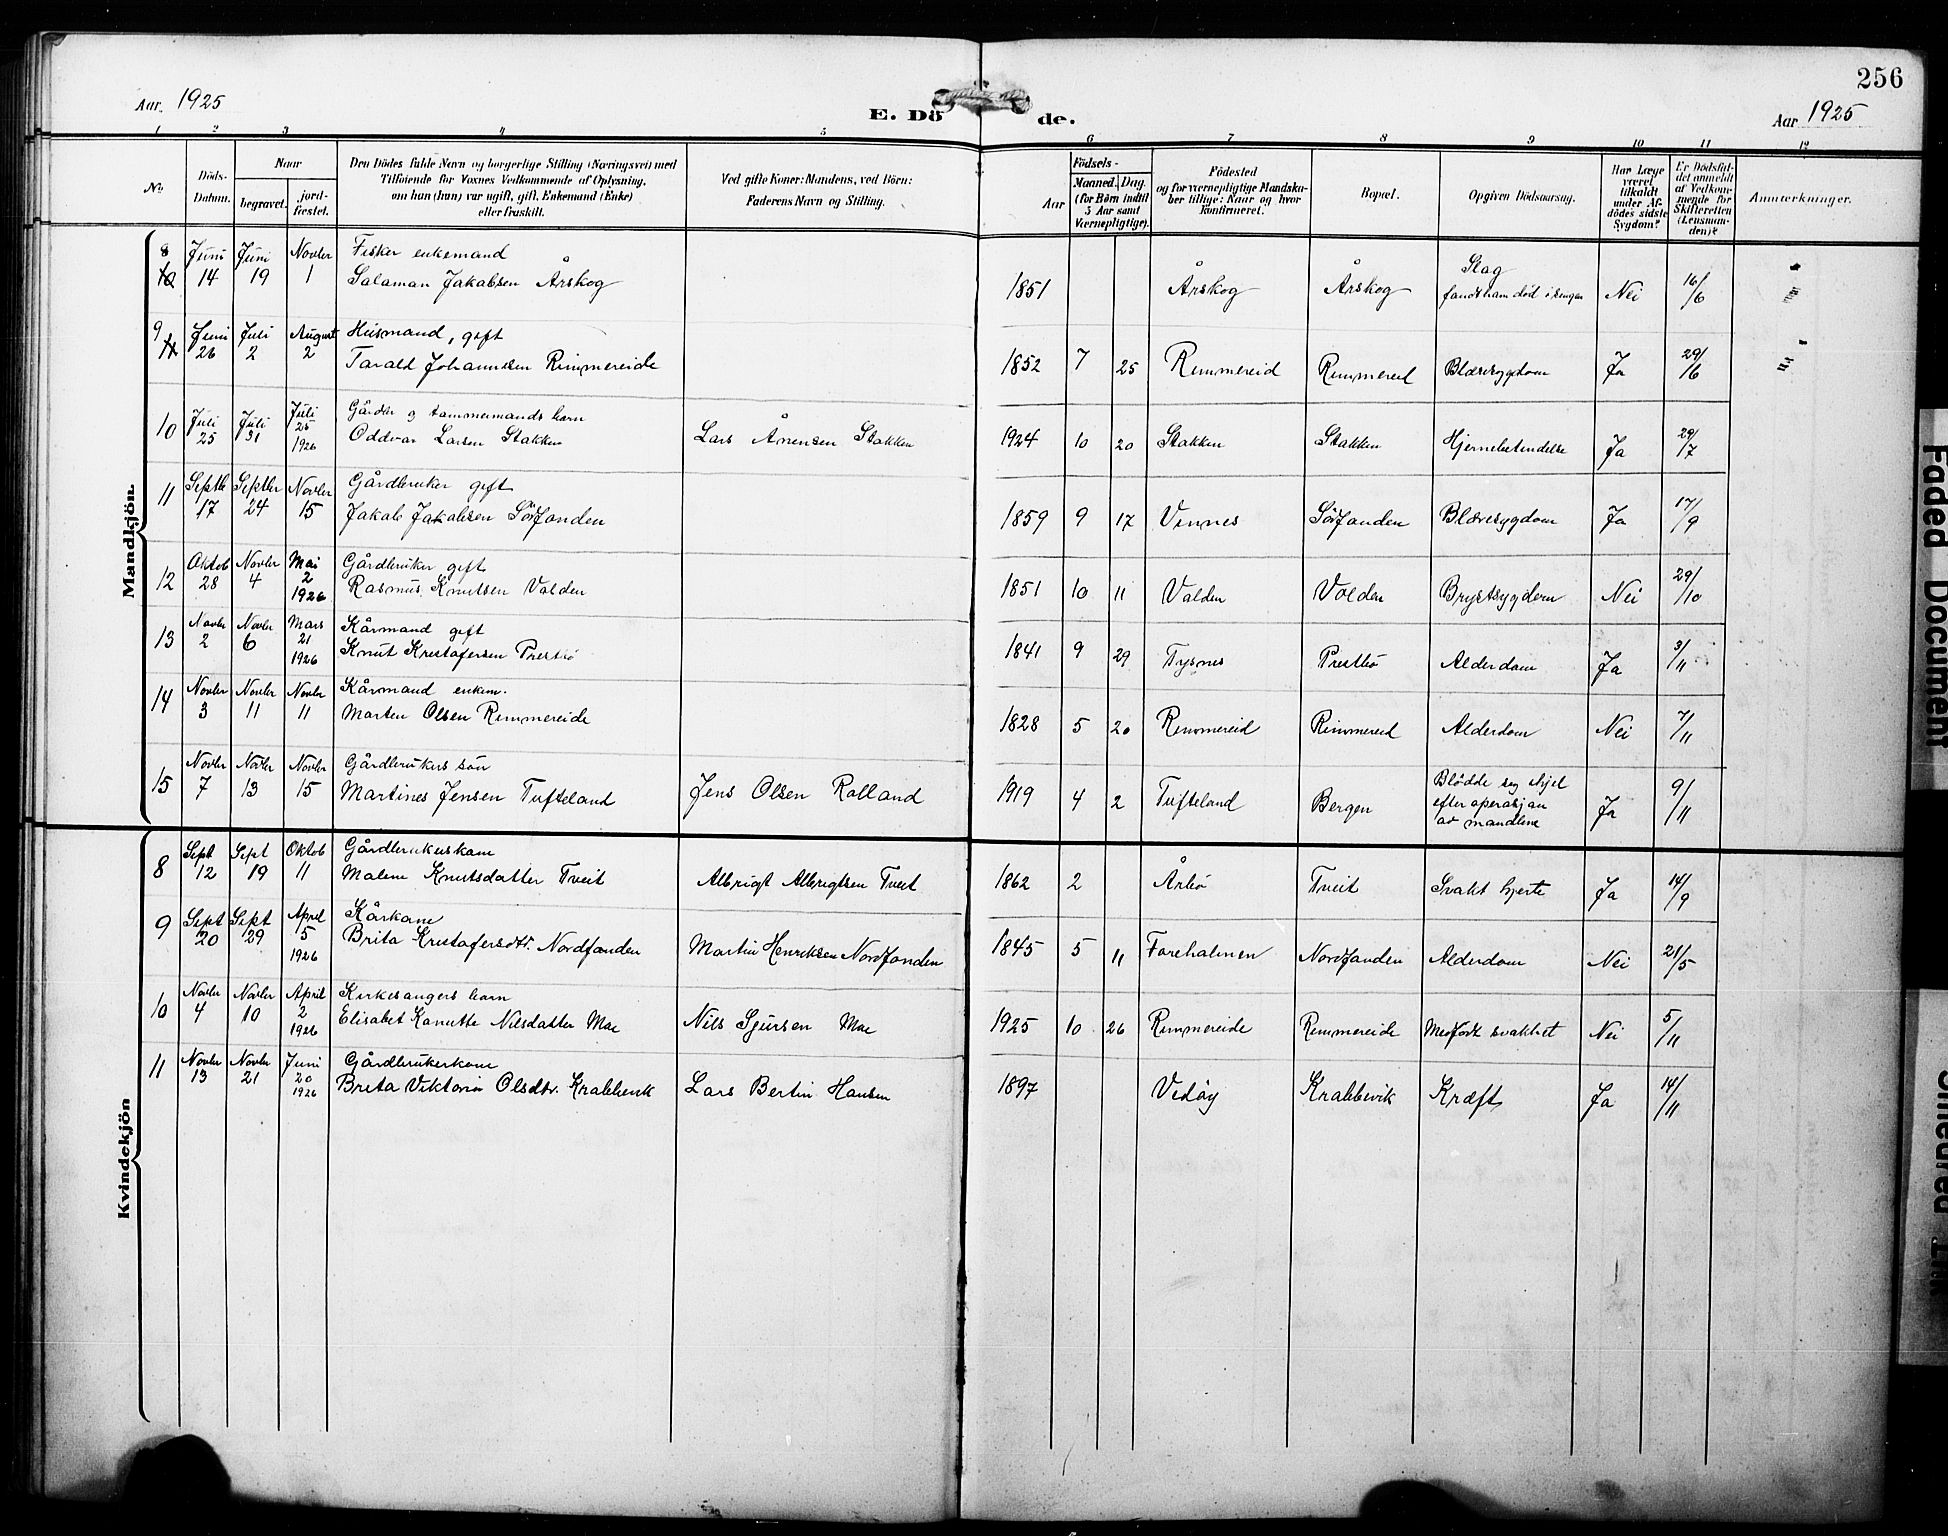 256
Aar. 1925
E. Dö de.
Aar 1925
1 2 3 4 5 6 7 8 9 10 11 12
No.
Döds-Datum.
Naar
begravet.
jord-fæstet.
Den Dödes fulde Navn og borgerlige Stilling (Næringsvei) med
Tilföiende for Voxnes Vedkommende af Oplysning,
om han (hun) var ugift, gift, Enkemand (Enke)
eller fraskilt.
Ved gifte Koner: Mandens, ved Börn:
Faderens Navn og Stilling.
Aar
Födsels-
Maaned. Dag.
(for Börn indtil
5 Aar samt
Værnepligtige).
Födested
og for værnepligtige Mandska-
ber tillige: Naar og hvor
konfirmeret.
Bopæl.
Opgiven Dödsaarsag.
Har Læge
været
tilkaldt
under Af-
dödes sidste
Sygdom?
Er Dödsfal-
det anmeldt
af Vedkom-
mende for
Skifteretten
(Lensman-
den)?
Anmærkninger.
Mandkjön.
8 Juni 14 Juni 19 Novbr 1 Fisker enkemand
Salaman Jakobsen Årskog 1851 Årskog Årskog Slag
fandt ham död i sengen Nei 16/6
9 Juni 26 Juli 2 August 2 Husmand, gift
Tarald Johannesen Rimmereide 1852 7 25 Rimmereid Rimmereid Blæresygdom Ja 29/6
10 Juli 25 Juli 31 Juli 25 1926 Gårdbr. og tømmermands barn
Oddvar Larsen Stakken Lars Ånensen Stakken 1924 10 20 Stakken Stakken Hjernebetendelse Ja 29/7
11 Septbr 17 Septbr 24 Novbr 15 Gårdbruker gift
Jakob Jakobsen Sörfonden 1859 9 17 Vinnes Sörfonden Blæresygdom Ja 17/9
12 Oktob 28 Novbr 4 Mai 2 1926 Gårdbruker gift
Rasmus Knutsen Valden 1851 10 11 Valden Volden Brystsygdom Nei 29/10
13 Novbr 2 Novbr 6 Mars 21 1926 Kårmand gift
Knut Kristofersen Prestbö 1841 9 29 Tysnes Prestbö Alderdom Ja 3/11
14 Novbr 3 Novbr 11 Novbr 11 Kårmand enkem.
Morten Olsen Rimmereide 1828 5 20 Rimmereid Rimmereid Alderdom Nei 7/11
15 Novbr 7 Novbr 13 Novbr 15 Gårdbrukers sön
Martines Jensen Tufteland Jens Olsen Rolland 1919 4 2 Tufteland Bergen Blödde seg ihjel
efter operasjon
av mandlene Ja 9/11
Kvindekjön
8 Sept 12 Sept 19 Oktob 11 Gårdbrukerskone
Malene Knutsdatter Tveit Albrigt Albrigtsen Tveit 1862 2 Årbö Tveit Svakt hjerte Ja 14/9
9 Sept 20 Sept 29 April 5 1926 Kårkone
Brita Kristofersdtr. Nordfonden Martin Henriksen Nordfonden 1845 5 11 Foreholmen Nordfonden Alderdom Nei 21/5
10 Novbr 4 Novbr 10 April 2 1926 Kirkesangers barn
Elisabet Kanutte Nilsdatter Moe Nils Sjursen Moe 1925 10 26 Rimmereide Rimmereide Medfödt svakhet Nei 5/11
11 Novbr 13 Novbr 21 Juni 20 1926 Gårdbrukerkone
Brita Viktoria Olsdtr. Krabbevik Lars Bertin Hansen 1897 Vedöy Krabbevik Kræft Ja 14/11
Faded Document